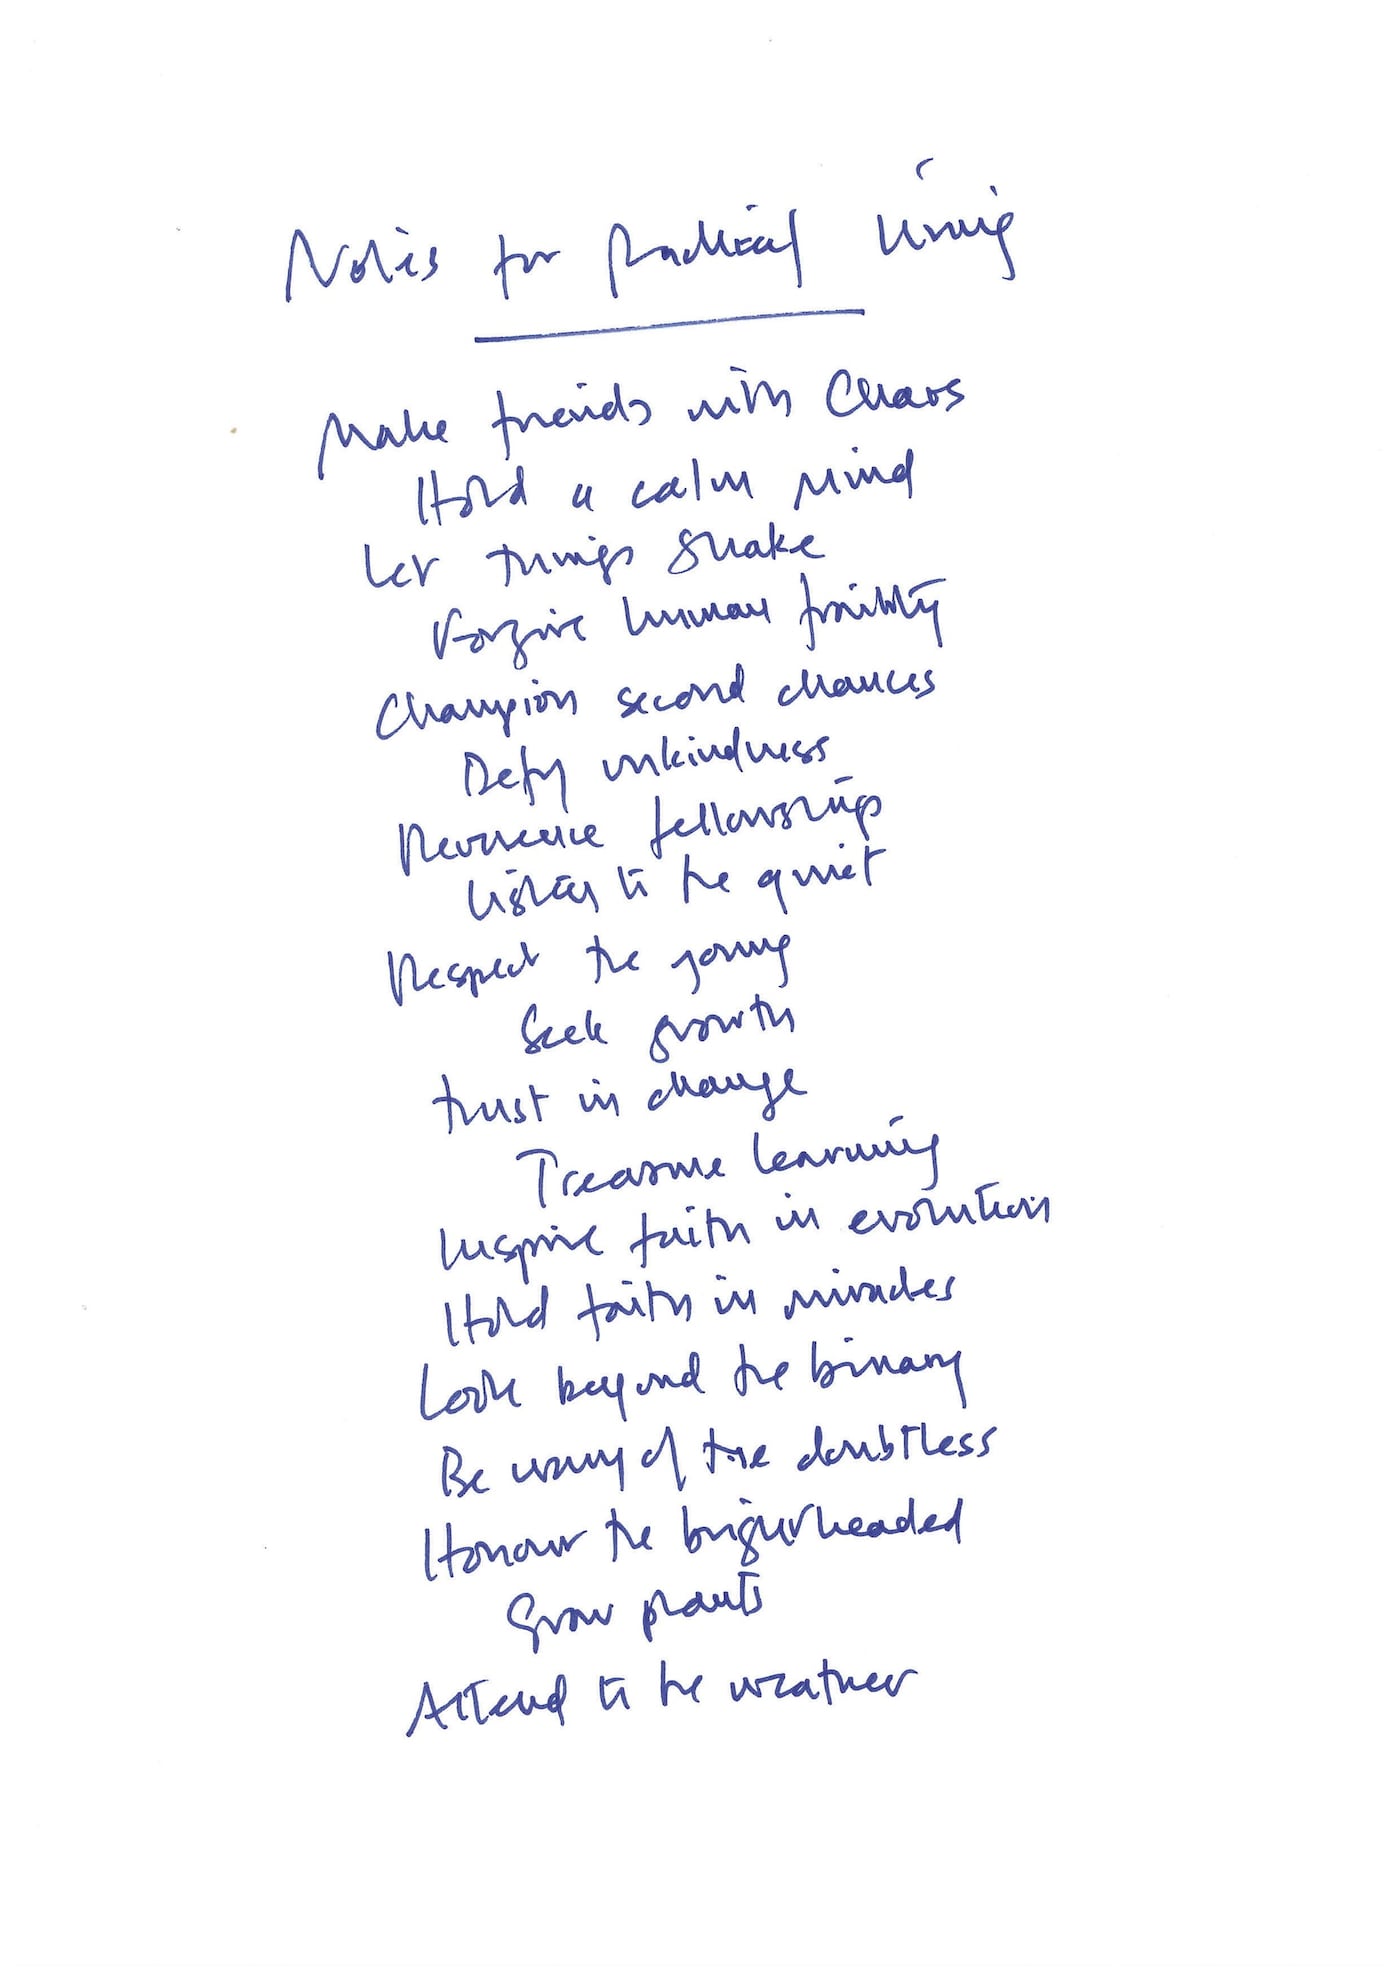 Notes for Radical Living
Make friends with Chaos
Hold a calm mind
Let things shake
Forgive human frailty
Champion second chances
Defy unkindness
Reverence fellowship
Listen to the quiet
Respect the young
Seek growth
Trust in change
Treasure learning
Inspire faith in evolution
Hold faith in miracles
Look beyond the binary
Be wary of the doubtless
Honour the brightheaded
Grow plants
Attend to the weather